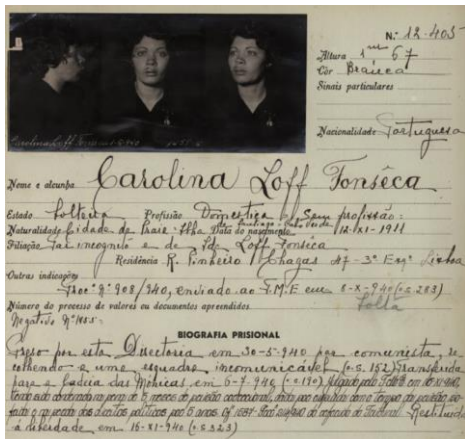 N.º 12.403
Altura 1m 67
Côr Branca
Sinais particulares
Nacionalidade Portuguesa
Carolina Loff Fonseca
Nome e alcunha Carolina Loff Fonsêca
Estado Solteira Profissão Domestica Sem profissão
Naturalidade Cidade da Praia - Ilha de Santiago - Cabo Verde Data do nascimento 12-XI-1911
Filiação Pai incognito e de Loff Fonsêca
Residência R. Pinheiro Chagas 47-3º Esqº Lisboa
Outras indicações
Procº nº 908/940, enviado ao T.M.E em 8-X-940 (o.s.283)
Número do processo de valores ou documentos apreendidos Solta
Negativo Nº
BIOGRAFIA PRISIONAL
Preso por esta Directoria em 30-5-940 por comunista, re
colhendo a uma esquadra incomunicável (o.s.152) Transferida
para a Cadeia das Mónicas em 6-7-940 (o.s.190) Julgada pelo T.M.E em
tendo sido condenada na pena de meses de prisão correccional, dada por expiada com o tempo de prisão so-
frida e na perda dos direitos politicos por 5 anos. Restituida
á liberdade em 16-XI-940 (o.s.323)